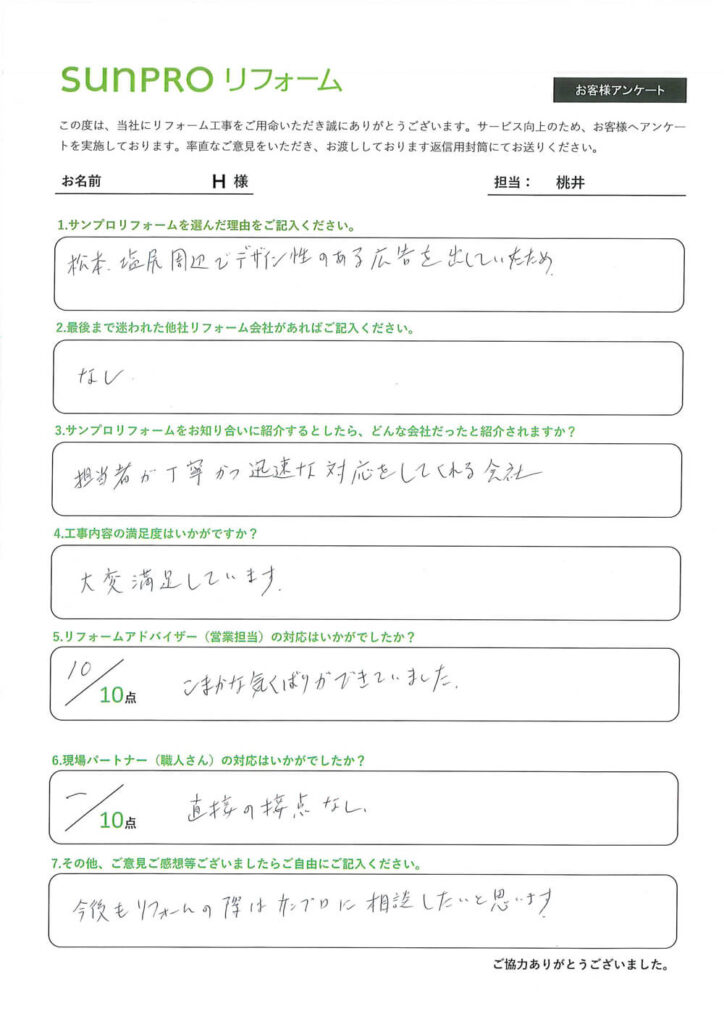 sunPRO リフォーム
お客様アンケート
この度は、当社にリフォーム工事をご用命いただき誠にありがとうございます。サービス向上のため、お客様へアンケー
トを実施しております。率直なご意見をいただき、お渡ししております返信用封筒にてお送りください。
お名前 H 様 担当： 桃井
1.サンプロリフォームを選んだ理由をご記入ください。
松本、塩尻周辺でデザイン性のある広告を出していたため
2.最後まで迷われた他社リフォーム会社があればご記入ください。
なし
3.サンプロリフォームをお知り合いに紹介するとしたら、どんな会社だったと紹介されますか？
担当者が丁寧かつ迅速な対応をしてくれる会社
4.工事内容の満足度はいかがですか？
大変満足しています。
5.リフォームアドバイザー（営業担当）の対応はいかがでしたか？
10/10点 こまかな気くばりができていました。
6.現場パートナー（職人さん）の対応はいかがでしたか？
ー/10点 直接の接点なし。
7.その他、ご意見ご感想等ございましたらご自由にご記入ください。
今後もリフォームの際はサンプロに相談したいと思います
ご協力ありがとうございました。